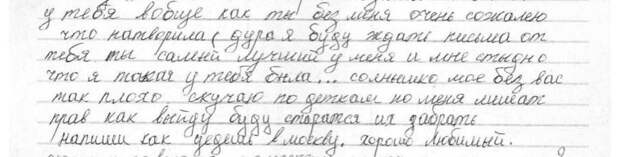 у тебя вобще как ты без меня очень сожалею
что натворила, дура я буду ждать письма от
тебя ты самый лучший у меня и мне стыдно
что я такая у тебя была... солнышко мое без вас
так плохо скучаю по деткам но меня лишат
прав как выйду буду старатся их забрать
напиши как уедеш в москву. хорошо любимый.